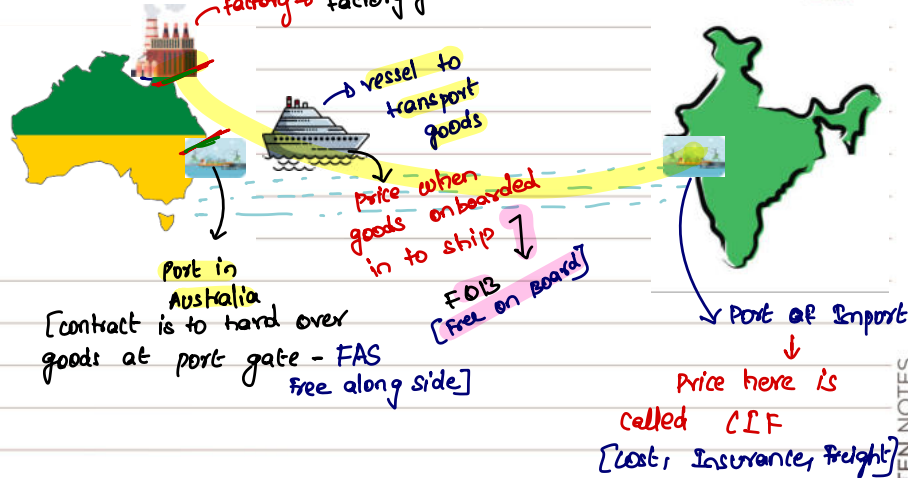 factory
vessel to
transport
goods
Price when
goods onboarded
in to ship
FOB
[Free on Board]
Port in
Australia
[contract is to hand over
goods at port gate - FAS
Free along side]
Port of Import
Price here is
called CIF
[Cost, Insurance, Freight]
TEN NOTES